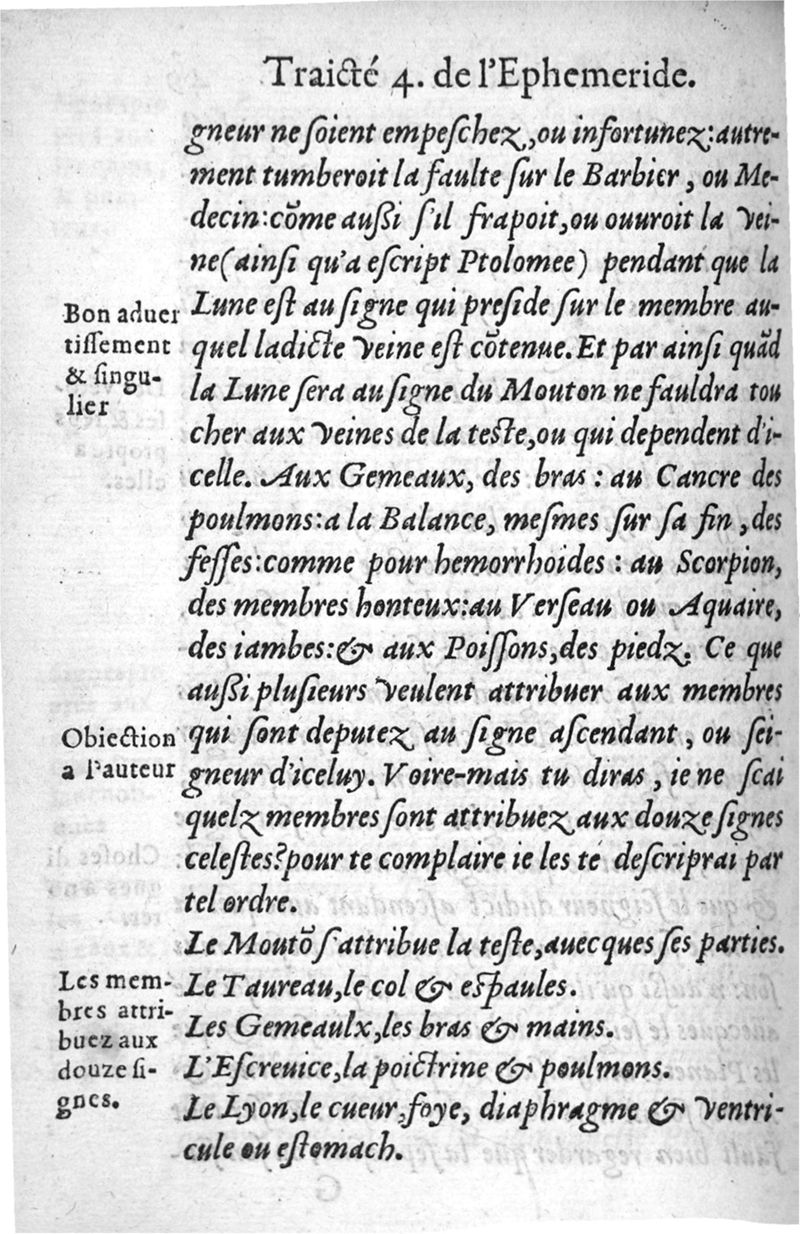 Traicté 4. de l'Ephemeride.
gneur ne ſoient empeſchez, ou infortunez: autre-
ment tumberoit la faulte ſur le Barbier, ou Me-
decin: cõme auſſi ſ'il frapoit, ou ouuroit la vei-
ne (ainſi qu'a eſcript Ptolomee) pendant que la
Bon aduer
tiſſement
& ſingu-
lier
Lune eſt au ſigne qui preſide ſur le membre au-
quel ladicte veine eſt cõtenue. Et par ainſi quãd
la Lune ſera au ſigne du Mouton ne fauldra tou
cher aux veines de la teſte, ou qui dependent d'i-
celle. Aux Gemeaux, des bras: au Cancre des
poulmons: a la Balance, meſmes ſur ſa fin, des
feſſes: comme pour hemorrhoides: au Scorpion,
des membres honteux: au Verſeau ou Aquaire,
des iambes: & aux Poiſſons, des piedz. Ce que
auſſi pluſieurs veulent attribuer aux membres
Obiection
a l'auteur
qui ſont deputez au ſigne aſcendant, ou ſei-
gneur d'iceluy. Voire-mais tu diras, ie ne ſcai
quelz membres ſont attribuez aux douze ſignes
celeſtes? pour te complaire ie les te deſcriprai par
tel ordre.
Le Moutõ ſ'attribue la teſte, auecques ſes parties.
Les mem-
bres attri-
buez aux
douze ſi-
gnes.
Le Taureau, le col & eſpaules.
Les Gemeaulx, les bras & mains.
L'Eſcreuice, la poictrine & poulmons.
Le Lyon, le cueur, foye, diaphragme & ventri-
cule ou eſtomach.